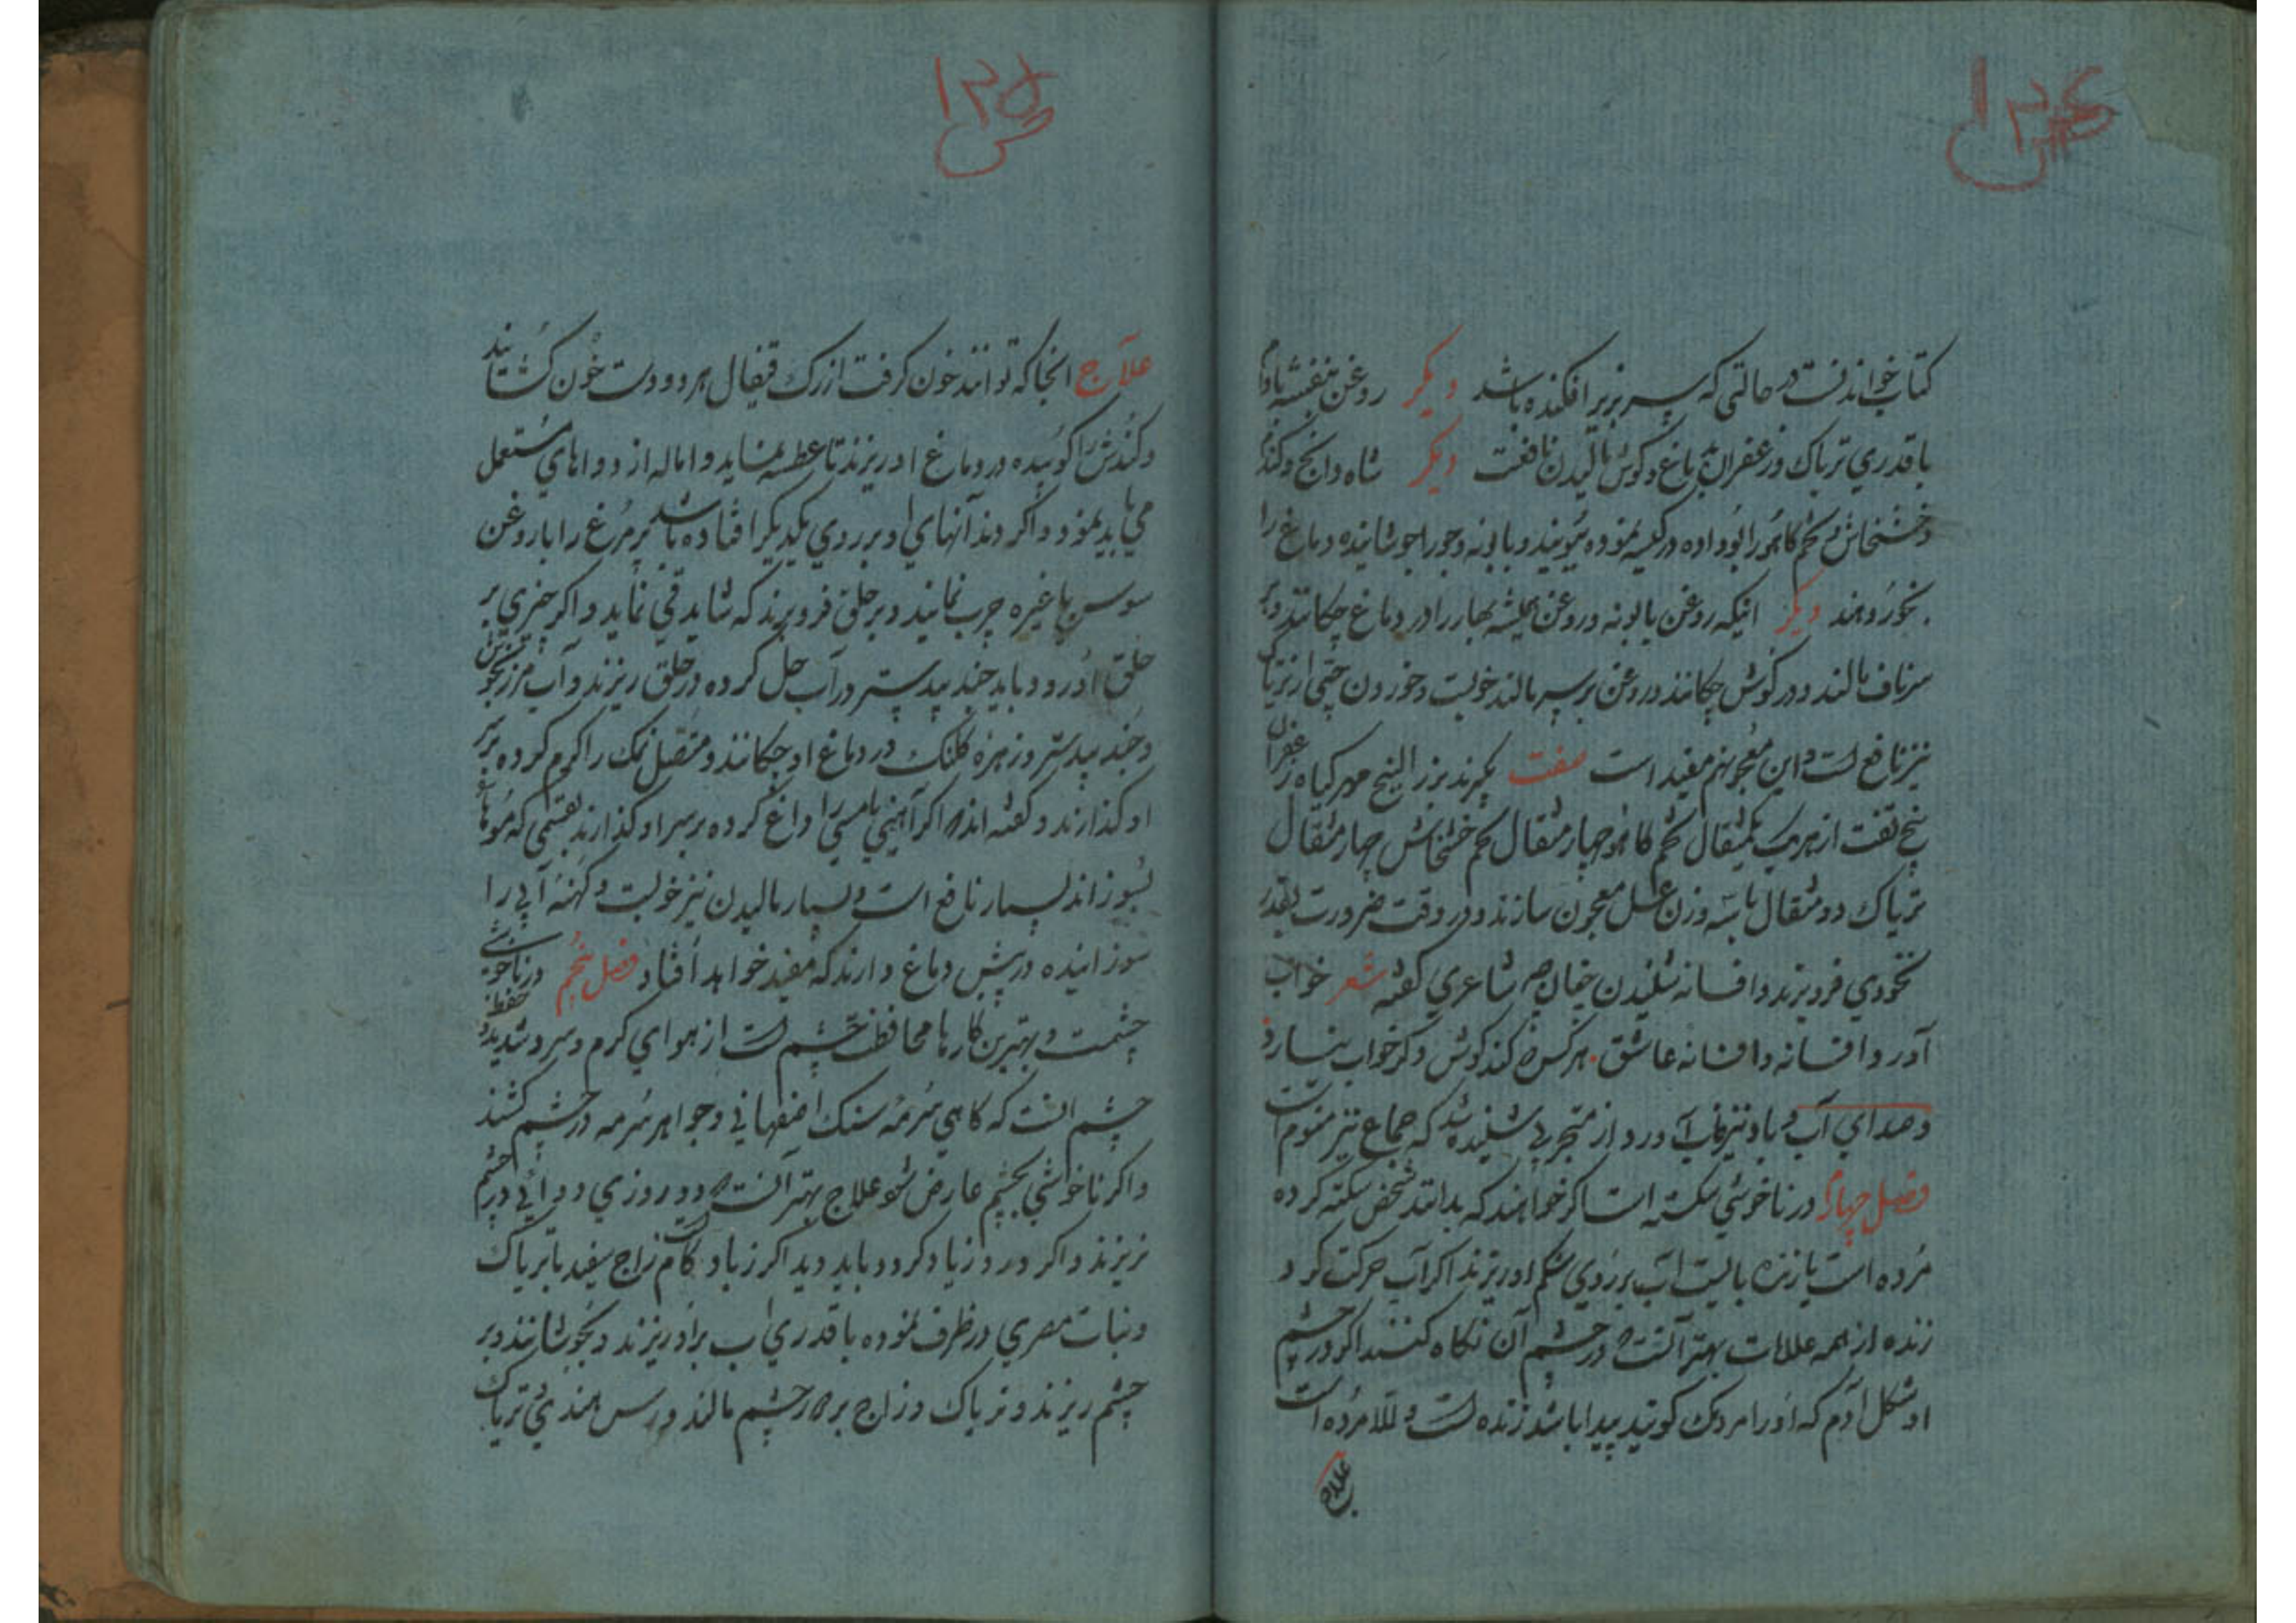 ۱۲۴
کتاب خواندنست در حالتی که سر بزیر افکنده باشد دیگر روغن بنفشه بادام
با قدری تریاک و زعفران بدماغ و گوش مالیدن نافعست دیگر شاه دانج و کندر
و خشخاش و تخم کاهو را بو داده در کیسه نموده بویند و بابونه و جو را جوشانیده دماغ را
بخور دهند دیگر اینکه روغن بابونه و روغن همیشه بهار را در دماغ چکانند و بر
سر ناف مالند و در گوش چکانند و روغن بر سر مالند خوبست و خوردن حبی از تریاک
نیز نافع است و این معجون هم مفید است صفت بگیرند بزر البنج مهر گیاه زعفران
بیخ تفت از هر یک یکمثقال تخم کاهو چهار مثقال تخم خشخاش چهار مثقال
تریاک دو مثقال با سه وزن عسل معجون سازند و در وقت ضرورت بقدر
نخودی فرو برند و افسانه شنیدن چنانکه شاعری گفته شعر خواب
آورد افسانه و افسانه عاشق هر کس که کند گوش دگر خواب ندارد
و صدای آب و باد نیز خواب آورد و از متجربی شنیده شد که جماع نیز منوم است
فصل چهارم در ناخوشی سکته است اگر خواهند که بدانند شخص سکته کرده
مرده است یا زنده بایست آب بر روی شکم او ریزند اگر آب حرکت کرد
زنده از همه علامات بهتر آنست که در چشم آن نگاه کنند اگر در چشم
او شکل آدم که او را مردمک گویند پیدا باشد زنده است و الا مرده است
علاج
۱۲۵
علاج آنجا که توانند خون گرفت از رگ قیفال هر دو دست خون گشایند
و کندش را کوبیده در دماغ او ریزند تا عطسه نماید و اماله از دواهای مستعمل
می باید نمود و اگر دندانهای او بر روی یکدیگر افتاده باشد پر مرغ را با روغن
سوسن یا غیره چرب نمایند و بر حلق فرو برند که شاید قی نماید و اگر چیزی بر
حلق او رود باید جند بیدستر در آب حل کرده در حلق ریزند و آب مرزنجوش
و جند بیدستر و زهره کلنک در دماغ او چکانند و متصل نمک را گرم کرده بر سر
او گذارند و گفته اند که اگر آهنی یا مسی را داغ کرده بر سر او گذارند بقسمی که موها
بسوزاند بسیار نافع است و بسیار مالیدن نیز خوبست و کهنه آبی را
سوزانیده در پیش دماغ دارند که مفید خواهد افتاد فصل پنجم در ناخوشی
چشمست و بهترین کارها محافظت چشم است از هوای گرم و سرد شدید و حفظ
چشم آنست که گاهی سرمه سنگ اصفهانی و جواهر سرمه در چشم کشند
و اگر ناخوشی بچشم عارض شود علاج بهتر آنست که دو روزی دوائی در چشم
نریزند و اگر درد زیاد کرد و باید دید اگر زیاد زاج سفید با تریاک
و نبات مصری در ظرف نموده با قدری آب بر او ریزند و بجوشانند و بر
چشم ریزند و تریاک و زاج بر چشم مالند و رس هندی و تریاک